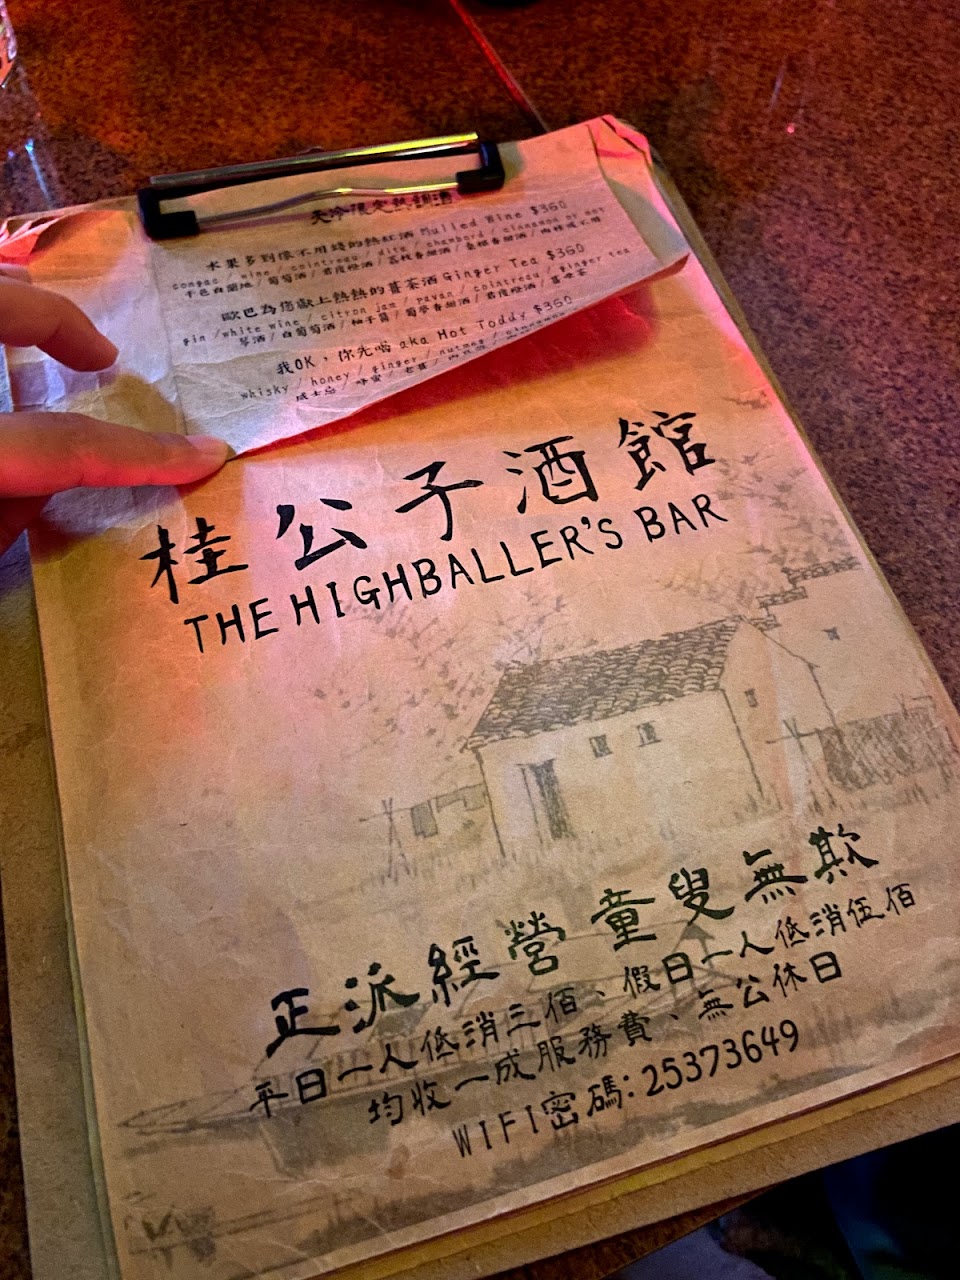 天冷限定熱調酒
水果多到像不用錢的熱紅酒 Mulled Wine $360
congac / wine / cointreau / dita / chambord / cinnamon or not
干邑白蘭地 / 葡萄酒 / 君度橙酒 / 荔枝香甜酒 / 桑椹香甜酒 / 肉桂或不用
歐巴為您獻上熱熱的薑茶酒 Ginger Tea $360
gin / white wine / citron jam / pavan / cointreau / ginger tea
琴酒 / 白葡萄酒 / 柚子醬 / 葡萄香甜酒 / 君度橙酒 / 薑母茶
我OK，你先喝 aka Hot Toddy $360
whisky / honey / ginger / nutmeg / cinnamon
威士忌 / 蜂蜜 / 老薑 / 肉豆蔻
桂公子酒館
THE HIGHBALLER'S BAR
正派經營 童叟無欺
平日一人低消三佰、假日一人低消伍佰
均收一成服務費、無公休日
WIFI密碼:25373649